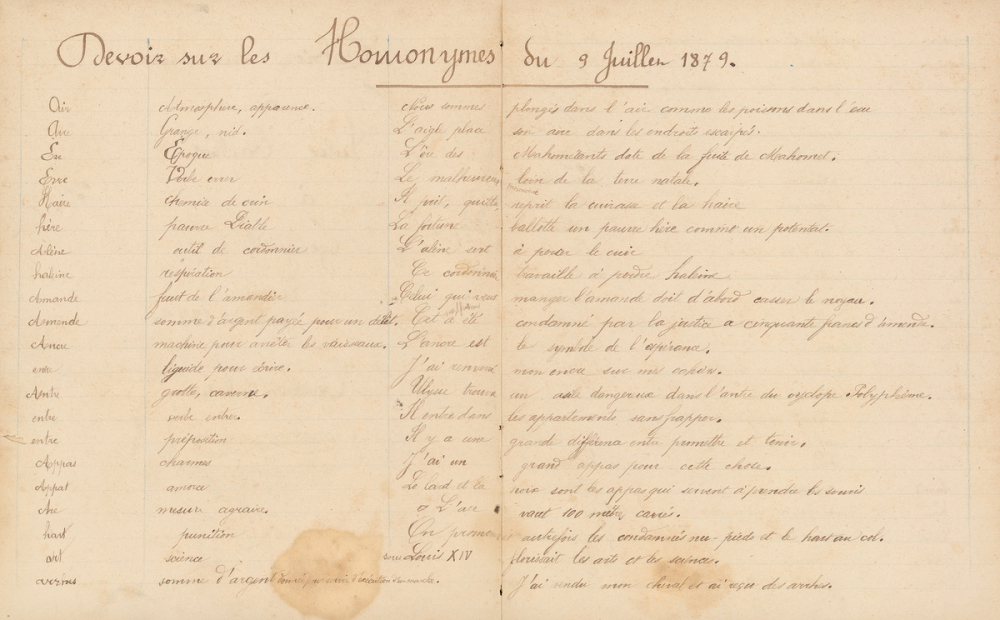 Devoir sur les Homonymes du 9 Juillet 1879.
Air Atmosphère, apparence. Nous sommes plongés dans l'air comme les poissons dans l'eau
Aire Grange, nid. L'aigle place son aire dans les endroits escarpés.
Ère Époque L'ère des Mahométants date de la fuite de Mahomet.
Erre Verbe errer Le malheureux loin de la terre natale.
Haire chemise de crin Il prit, quitta, reprit la cuirasse et la haire
hère pauvre Diable La fortune ballotte un pauvre hère comme un potentat.
Alène outil de cordonnier L'alène sert à percer le cuir
haleine respiration Ce cordonnier travaille à perdre haleine
Amande fruit de l'amandier Celui qui veut manger l'amande doit d'abord casser le noyau.
Amende somme d'argent payée pour un délit. Cet a été condamné par la justice a cinquante francs d'amende.
Ancre machine pour arrêter les vaisseaux. L'ancre est le symbole de l'espérance.
encre liquide pour écrire. J'ai renversé mon encre sur mes cahiers.
Antre grotte, caverne. Ulysse trouva un asile dangereux dans l'antre du cyclope Polyphème.
entre verbe entrer. Il entre dans les appartements sans frapper.
entre préposition Il y a une grande différence entre promettre et tenir.
Appas charmes J'ai un grand appas pour cette chose.
Appât amorce Le lard et la noix sont les appas qui servent à prendre les souris
Are mesure agraire. L'are vaut 100 mètres carrés.
hart punition On promenait autrefois les condamnés nu-pieds et le hart au col.
art science sous Louis XIV florissait les arts et les sciences.
arrhes somme d'argent J'ai vendu mon cheval et ai reçu des arrhes.